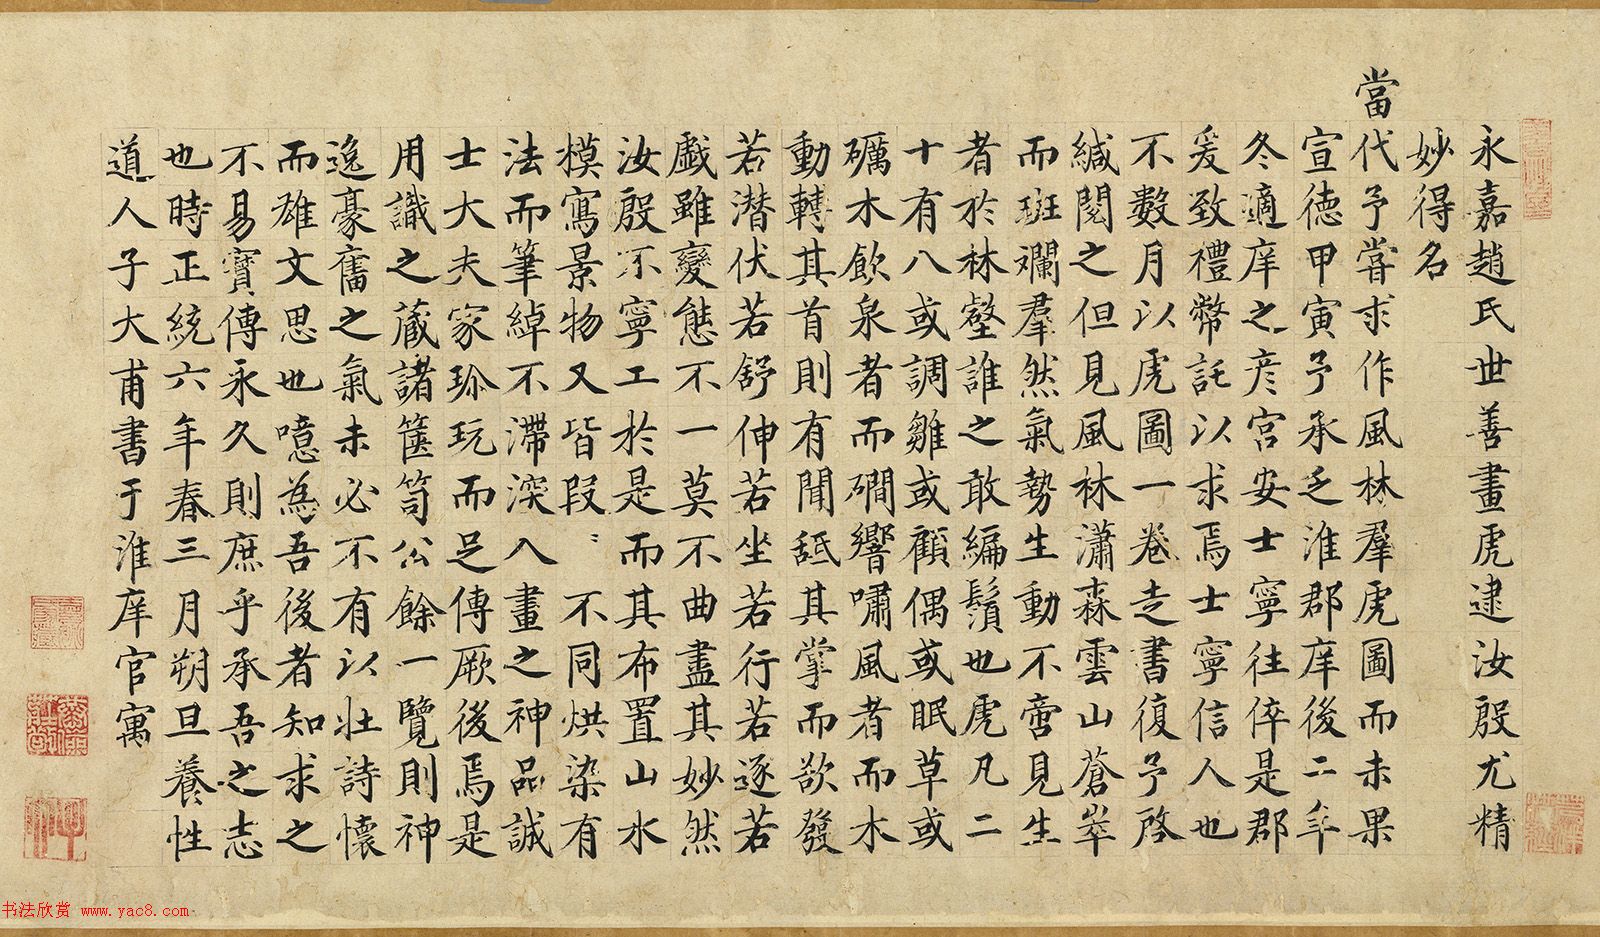 永嘉趙氏世善畫虎逮汝殷尤精
妙得名
當代予嘗求作風林羣虎圖而未果
宣德甲寅予承乏淮郡庠後二年
冬適庠之彦宫安士寧往倅是郡
爰致禮幣託以求焉士寧信人也
不數月以虎圖一卷走書復予啓
緘閱之但見風林瀟森雲山蒼崒
而斑斕羣然氣勢生動不啻見生
者於林壑誰之敢編鬚也虎凡二
十有八或調雛或顧偶或眠草或
礪木飲泉者而磵響嘯風者而木
動轉其首則有聞舐其掌而欲發
若潜伏若舒伸若坐若行若逐若
戱雖變態不一莫不曲盡其妙然
汝殷不寧工於是而其布置山水
模寫景物又皆段〻不同烘染有
法而筆綽不滯深入畫之神品誠
士大夫家珎玩而足傳厥後焉是
用識之蔵諸篋笥公餘一覽則神
逸豪奮之氣未必不有以壯詩懷
而雄文思也噫為吾後者知求之
不易寳傳永久則庶乎承吾之志
也時正統六年春三月朔旦養性
道人子大甫書于淮庠官寓
书法欣赏 www.yac8.com